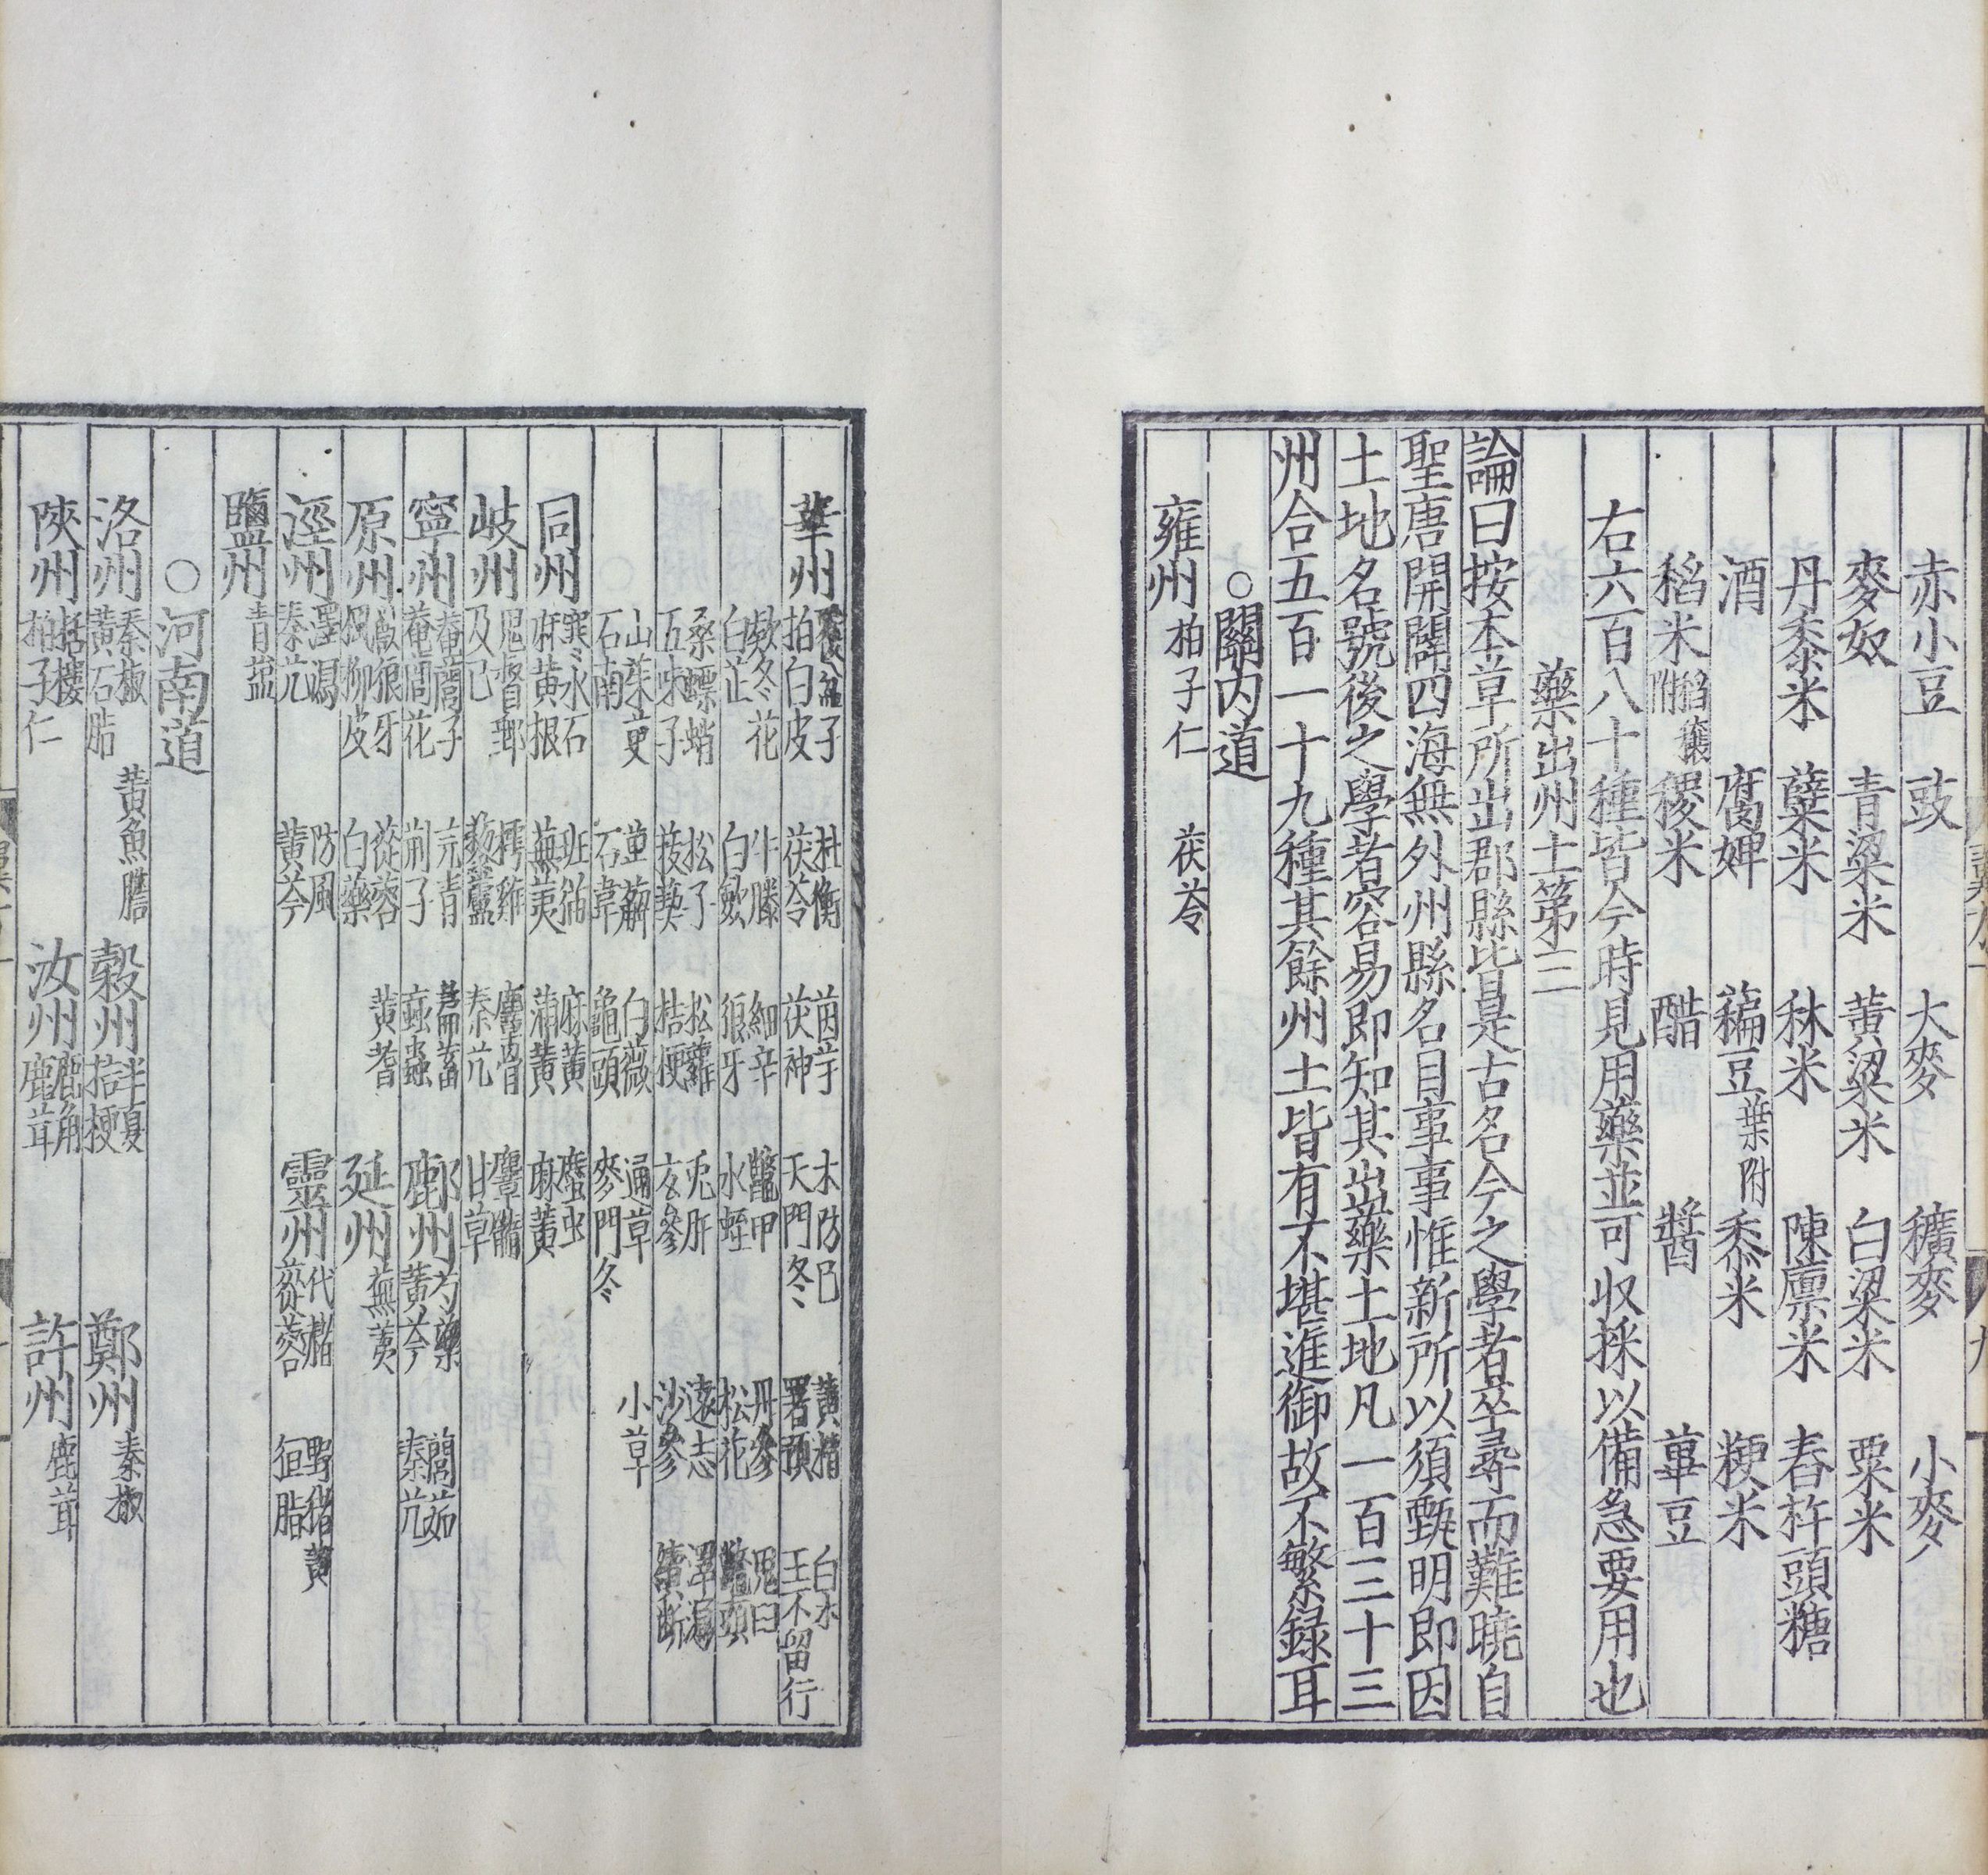 赤小豆 豉 大麥 穬麥 小麥
麥奴 青粱米 黃粱米 白粱米 粟米
丹黍米 糵米 秫米 陳廩米 舂杵頭糖
酒 腐婢 藊豆葉附 黍米 粳米
稻米稻穰附 稷米 酷 醬 萆豆
右六百八十種皆今時見用藥並可收採以備急要用也
藥出州土第三
論曰按本草所出郡縣皆是古名今之學者卒尋而難曉自
聖唐開闢四海無外州縣名目事事惟新所以須甄明即因
土地名號後之學者容易即知其出藥土地凡一百三十三
州合五百一十九種其餘州土皆有不堪進御故不繁録耳
○關內道
雍州 柏子仁 茯苓
華州 覆盆子 杜衡 茵芋 木防己 黃精 白朮
柏白皮 茯苓 茯神 天門冬 署預 王不留行
欵冬花 牛膝 細辛 鼈甲 丹參 鬼臼
白芷 白歛 狼牙 水蛭 松花 鼈頭
桑螵蛸 松子 松蘿 兎肝 遠志 澤瀉
五味子 菝葜 桔梗 玄參 沙參 續斷
山茱萸 萆薢 白薇 通草 小草
石南 石韋 龜頭 麥門冬
同州 寒水石 班猫 麻黃 䗪虫
麻黃根 蕪荑 蒲黃 麻蕡
岐州 鬼督郵 樗雞 麞骨 麞髓
及己 藜蘆 秦艽 甘草
寧州 菴䕡子 芫青 萹蓄 鄜州 芍藥 䕡茹
菴䕡花 荊子 䖟蟲 黃芩 秦艽
原州 獸狼牙 蓯蓉 黃耆 延州 蕪荑
楓柳皮 白藥
涇州 澤瀉 防風 靈州 代赭 野猪黃
秦艽 黃芩 蓯蓉 㹠脂
鹽州 青鹽
○河南道
洛州 秦椒 黃魚膽 榖州 半夏 鄭州 秦椒
黃石脂 桔梗
陝州 栝樓 汝州 鹿角 許州 鹿茸
柏子仁 鹿茸